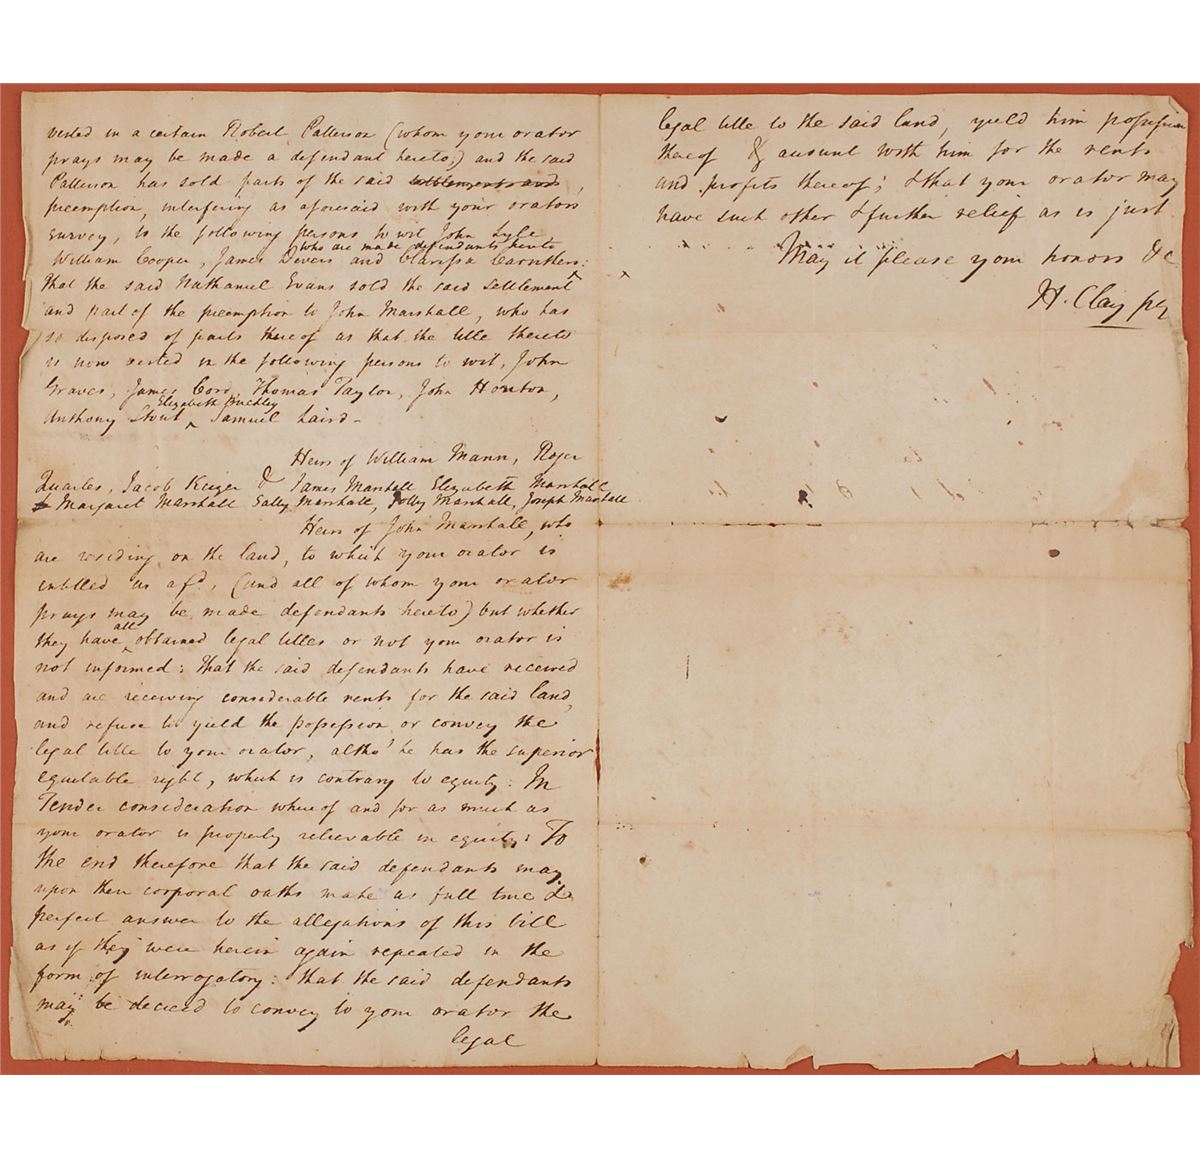 vested in a certain Robert Patterson (whom your orator
prays may be made a defendant hereto;) and the said
Patterson has sold parts of the said settlement and,
preemption, interfering as aforesaid with your orators
survey, to the following persons to wit, John Lyle,
who are made defendants hereto
William Cooper, James Devers and Clarissa Caruthers:
That the said Nathaniel Evans sold the said settlement
and part of the preemption to John Marshall, who has
so disposed of parts thereof as that the title thereto
is now vested in the following persons to wit, John
Graves, James Cord, Thomas Taylor, John Houton,
Elizabeth Buckley
Anthony Stout ‸ Samuel Laird -
Heirs of William Mann, Roger
Quarles, Jacob Keizer & James Marshall Elizabeth Marshall
Margaret Marshall Sally Marshall, Polly Marshall, Joseph Marshall
Heirs of John Marshall, who
are residing on the land, to which your orator is
entitled as afd., (and all of whom your orator
prays may be made defendants hereto) but whether
all
they have ‸ obtained legal titles or not your orator is
not informed: That the said defendants have received
and are receiving considerable rents for the said land,
and refuse to yield the possession or convey the
legal title to your orator, altho' he has the superior
equitable right, which is contrary to equity: In
Tender consideration whereof and for as much as
your orator is properly relievable in equity: To
the end therefore that the said defendants may
upon their corporal oaths make as full true &
perfect answer to the allegations of this bill
as if they were herein again repeated in the
form of interrogatory: that the said defendants
may be decreed to convey to your orator the
legal
legal title to the said land, yield him possession
thereof & account with him for the rents
and profits thereof; & that your orator may
have such other & further relief as is just
May it please your honors &c
H. Clay pq